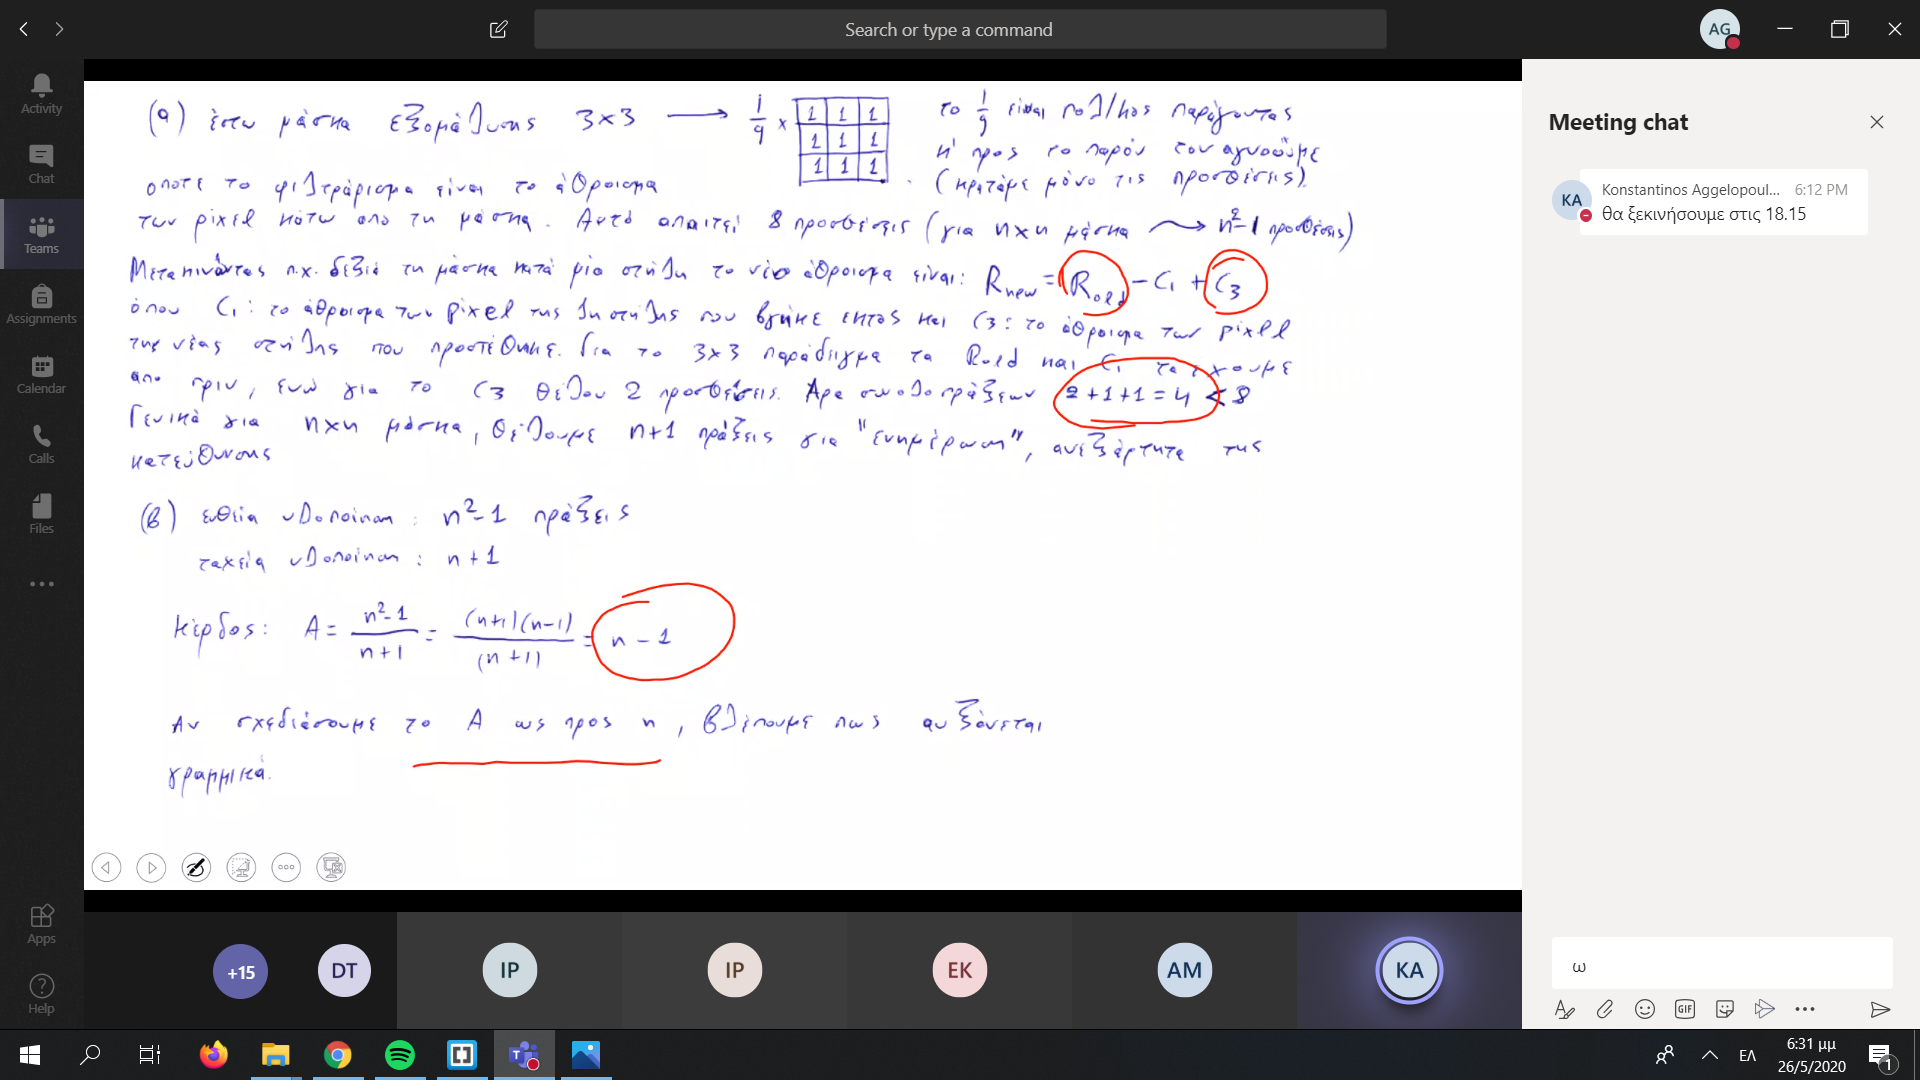 Search or type a command
AG
Activity
Chat
Teams
Assignments
Calendar
Calls
Files
Apps
Help
(α) έστω μάσκα εξομάλυνσης 3×3 → 1/9 × 1 1 1
1 1 1
1 1 1
το 1/9 είναι πολ/κος παράγοντας
κ' προς το παρόν τον αγνοούμε
(κρατάμε μόνο τις προσθέσεις).
οποτε το φιλτράρισμα είναι το άθροισμα
των pixel κάτω απο τη μάσκα. Αυτό απαιτεί 8 προσθέσεις (για n×n μάσκα → n²-1 προσθέσεις)
Μετακινώντας π.χ. δεξιά τη μάσκα κατά μία στήλη το νέο άθροισμα είναι: Rnew = Rold - C₁ + C₃
όπου C₁: το άθροισμα των pixel της 1η στήλης που βγήκε εκτός και C₃: το άθροισμα των pixel
της νέας στήλης που προστέθηκε. Για το 3×3 παράδειγμα τα Rold και C₁ τα έχουμε
απο πριν, ενώ για το C₃ θέλου 2 προσθέσεις. Άρα συνολο πράξεων 2+1+1=4 < 8
Γενικά για n×n μάσκα, θέλουμε n+1 πράξεις για "ενημέρωση", ανεξάρτητα της
κατεύθυνσης
(β) ευθεία υλοποίηση : n²-1 πράξεις
ταχεία υλοποίηση : n+1
Κέρδος: A = (n²-1)/(n+1) = (n+1)(n-1)/(n+1) = n-1
Αν σχεδιάσουμε το A ως προς n, βλέπουμε πως αυξάνεται
γραμμικά.
+15
DT
IP
IP
EK
AM
KA
Meeting chat
KA
Konstantinos Aggelopoul... 6:12 PM
θα ξεκινήσουμε στις 18.15
ω
GIF
ΕΛ
6:31 μμ
26/5/2020
1